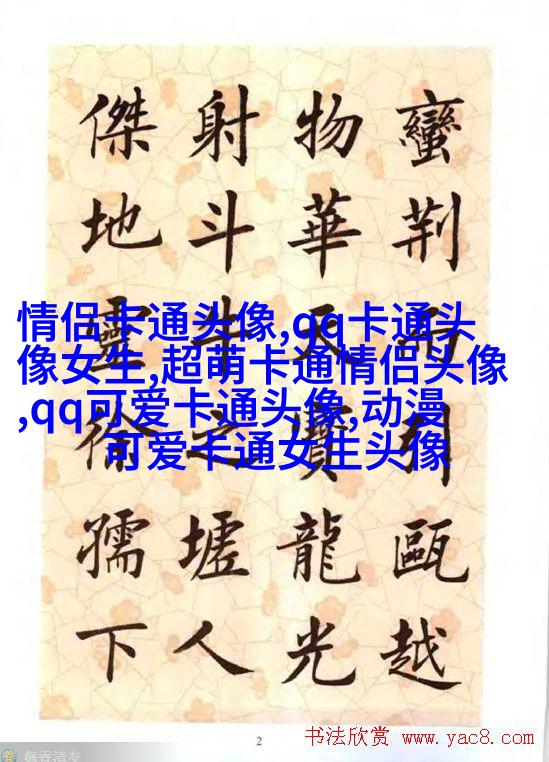 蠻荆而引甌越
物華天寶龍光
射斗牛之墟人
傑地靈徐孺下
情侣卡通头像,qq卡通头
像女生,超萌卡通情侣头像
,qq可爱卡通头像,动漫
可爱卡通女生头像
2
书法欣赏 www.yac8.com